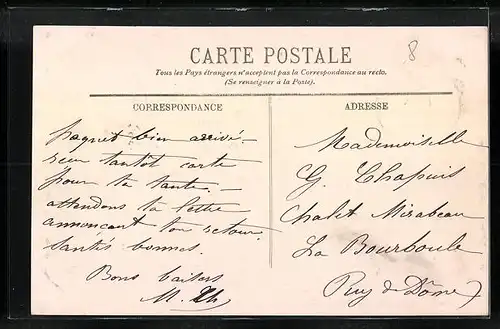 8
CARTE POSTALE
Tous les Pays étrangers n'acceptent pas la Correspondance au recto.
(Se renseigner à la Poste).
CORRESPONDANCE
paquet bien arrivé.
reçu tantôt carte
pour ta tante. —
attendons ta lettre
annonçant ton retour.
santés bonnes.
Bons baisers
M.
ADRESSE
Mademoiselle
G. Chapuis
Chalet Mirabeau
La Bourboule
Puy de Dôme)